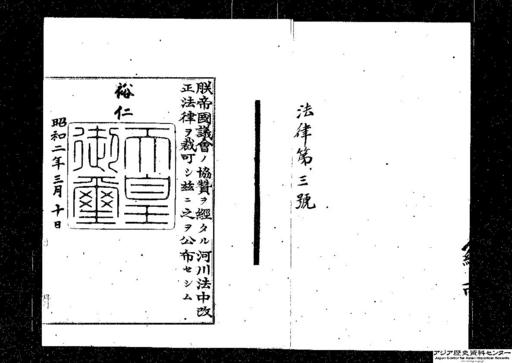 法律第三號
朕帝國議會ノ協贊ヲ經タル河川法中改
正法律ヲ裁可シ玆ニ之ヲ公布セシム
裕仁
天皇御璽
昭和二年三月十日
アジア歴史資料センター
Japan Center for Asian Historical Records